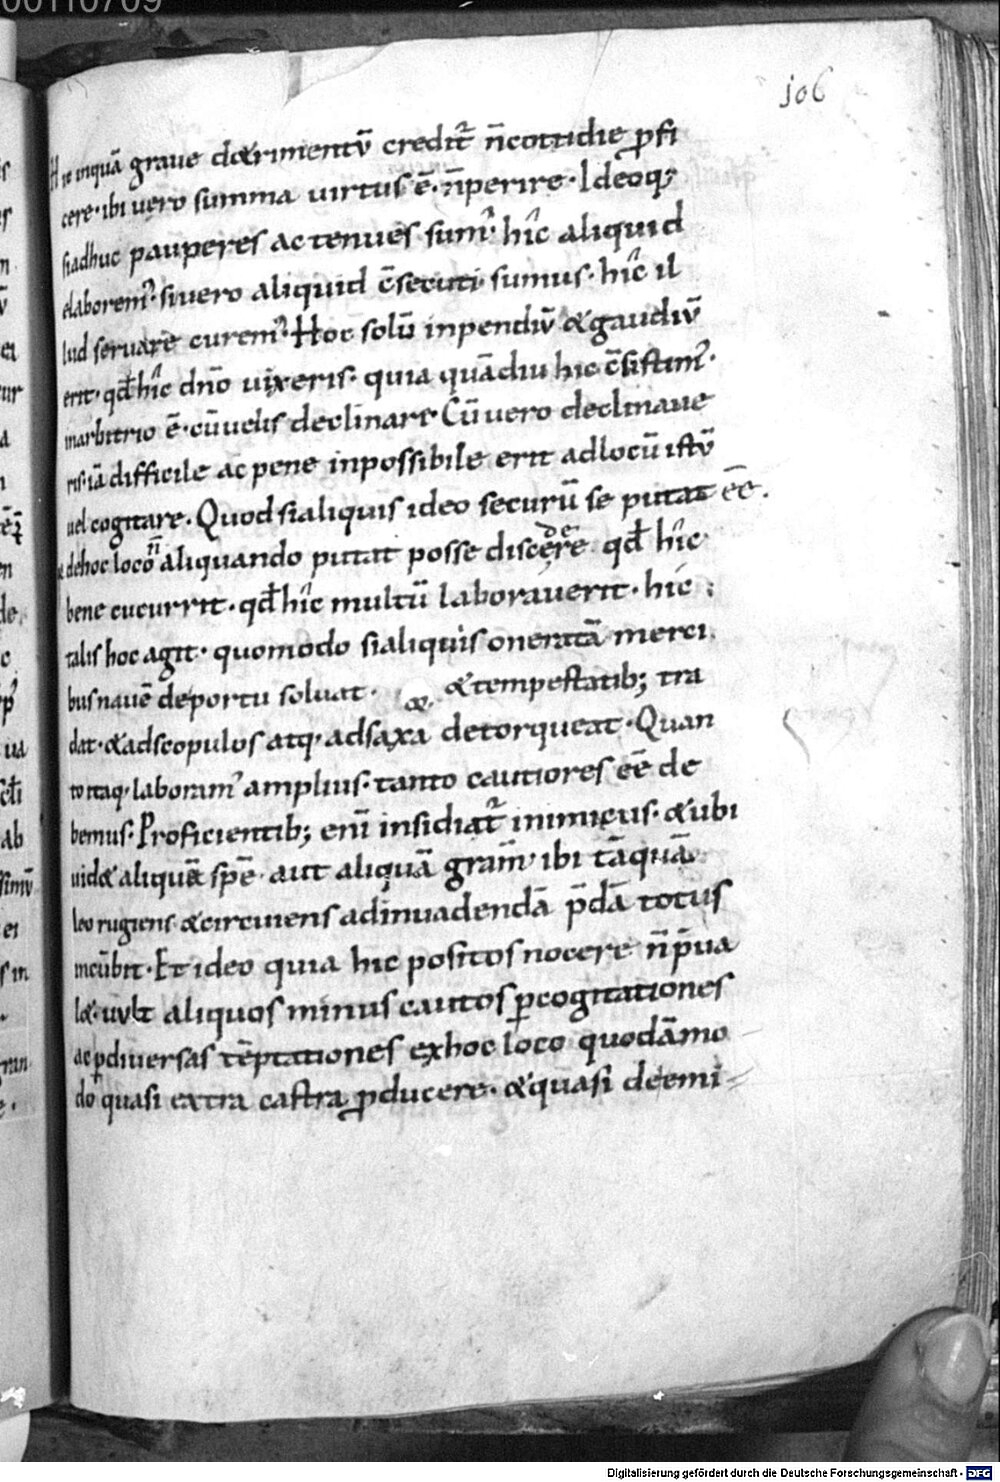 106
H re inquā graue detrimentū credit̄ n̄ cottidie ꝓfi
cere · ibi uero summa uirtus ē · n̄ perire · Ideoq;
siadhuc pauperes ac tenues sum᾽ hı̂c aliquid
elaborem᾽ · siuero aliquid c̄secuti sumus · hı̂c il
lud seruare curem᾽ · Hoc solū inpendiū & gaudiū
erit · qđ hı̂c dn̄o uixeris · quia quādiu hic c̄sistim᾽ ·
inarbitrio ē · cū uelis declinare · Cū uero declinaue
ris · iā difficile ac pene inpossibile erit adlocū istū
uel cogitare · Quod sialiquis ideo securū se putat ēe ·
& dehoc loco n̄ aliquando putat posse discedere qđ hı̂c
bene cucurrit · qđ hı̂c multū laborauerit · hic
talis hoc agit · quomodo sialiquis oneratā merci
bus nauē deportu soluat · & · & tempestatib; tra
dat · & adscopulos atq · adsaxa detorqueat · Quan
to itaq · laboram᾽ amplius · tanto cautiores ēe de
bemus · Proficientib; eni insidiat̄ inimicus · & ubi
uid& aliquē spē · aut aliquā gram̄ ibi tāquā
leo rugiens & circuiens adinuadendā p̄dā totus
incūbit · Et ideo quia hic positos nocere n̄ p̄ua
l& · uult aliquos minus cautos ꝑ cogitationes
ac ꝑ diuersas tēptationes exhoc loco quodāmo
do quasi extra castra ꝓducere · & quasi deemi
Digitalisierung gefördert durch die Deutsche Forschungsgemeinschaft - DFG